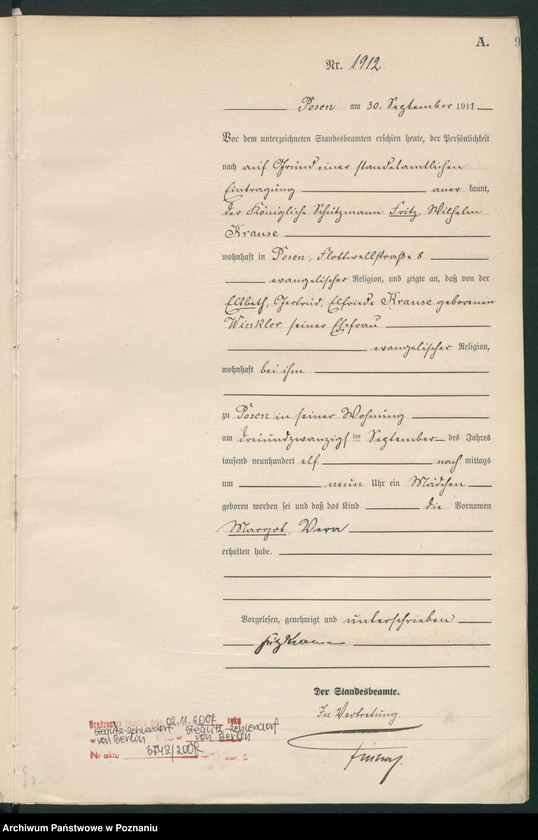 A.
9
Nr. 1912
Posen am 30. September 1911
Vor dem unterzeichneten Standesbeamten erschien heute, der Persönlichkeit
nach auf Grund einer standesamtlichen
Eintragung aner kannt,
der Königliche Schutzmann Fritz, Wilhelm
Krause
wohnhaft in Posen, Flottwellstraße 8
evangelischer Religion, und zeigte an, daß von der
Elsbeth, Gertrud, Elfriede Krause geborenen
Winkler seiner Ehefrau
evangelischer Religion,
wohnhaft bei ihm
zu Posen in seiner Wohnung
am dreiundzwanzigsten September des Jahres
tausend neunhundert elf nach mittags
um neun Uhr ein Mädchen
geboren worden sei und daß das Kind die Vornamen
Margot, Vera
erhalten habe.
Vorgelesen, genehmigt und unterschrieben
Fritz Krause
Der Standesbeamte.
In Vertretung
02.11.2007 roku
Steglitz-Zehlendorf Steglitz-Zehlendorf
w von Berlin w von Berlin
Nr aktu 3748/2007
Archiwum Państwowe w Poznaniu